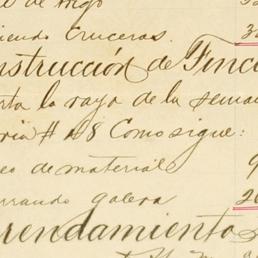 de trigo
iendo Cruceras. 3
nstrucción de Finc
rta la raya de la seman
ria # 28 Como sigue:
eo de material 9
errando galera 20
rrendamiento